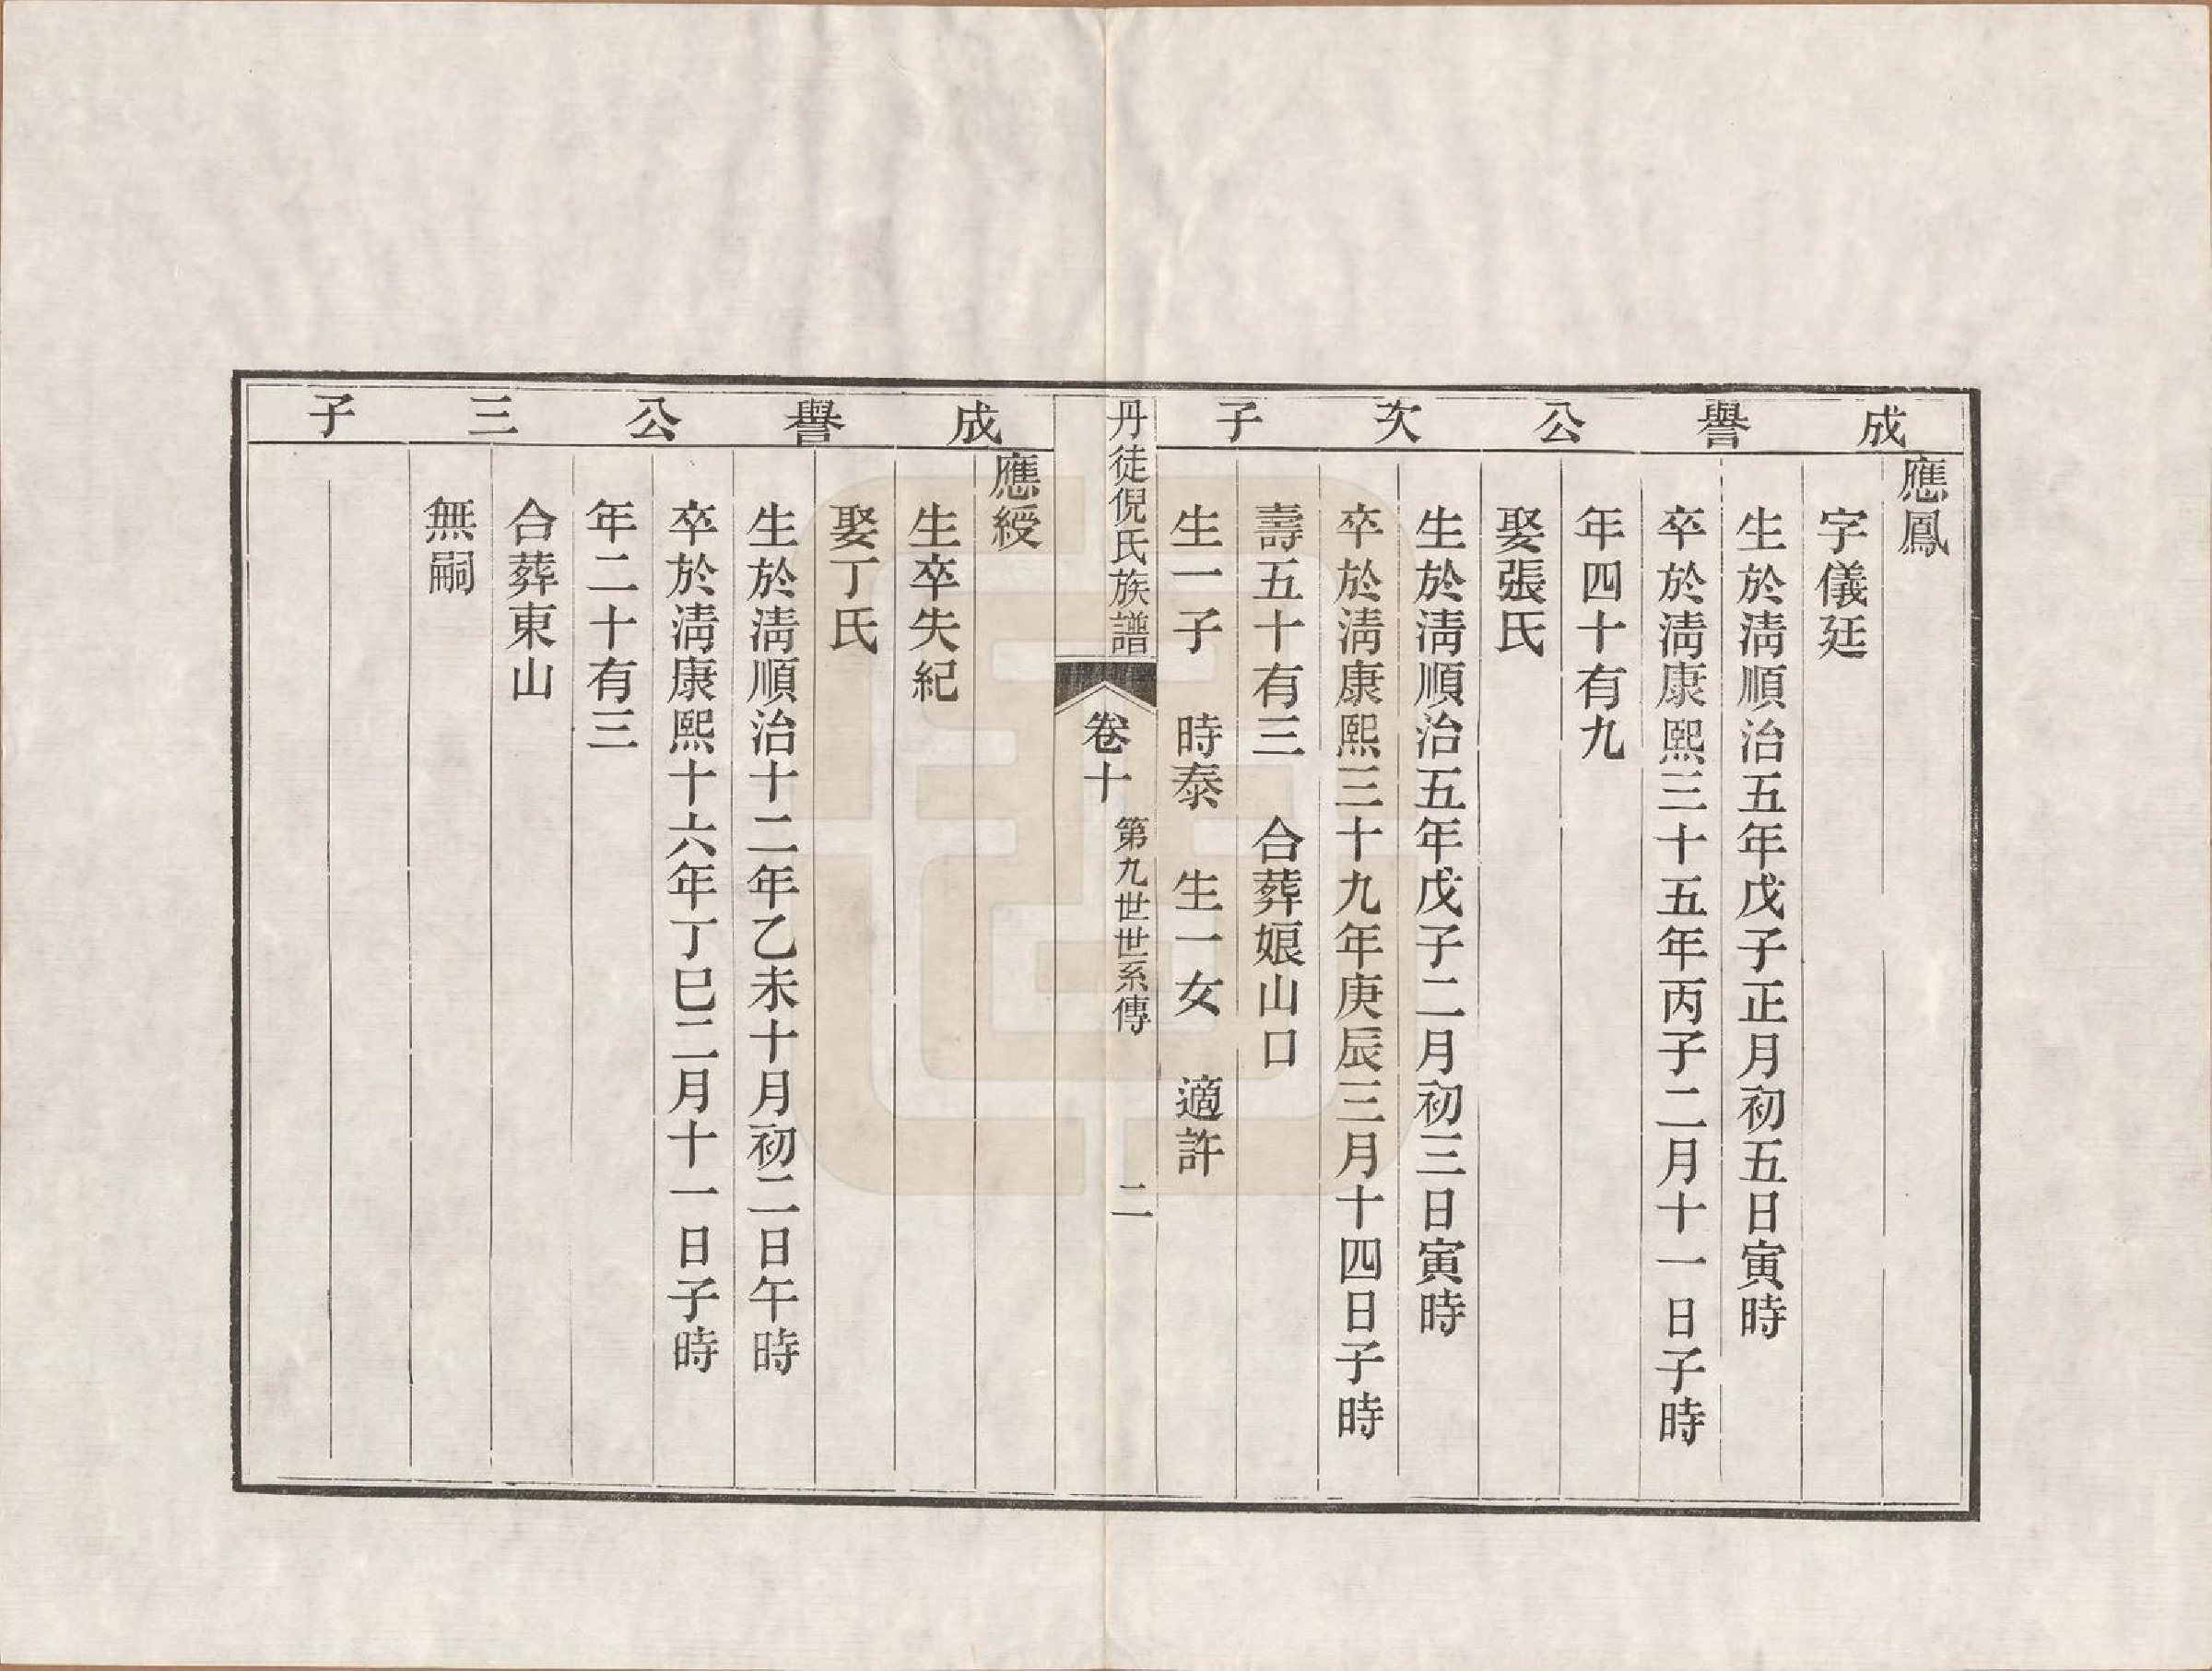 成譽公次子
應鳳
字儀廷
生於淸順治五年戊子正月初五日寅時
卒於淸康熙三十五年丙子二月十一日子時
年四十有九
娶張氏
生於淸順治五年戊子二月初三日寅時
卒於淸康熙三十九年庚辰三月十四日子時
壽五十有三　合葬娘山口
生一子　時泰　生一女　適許
丹徒倪氏族譜　卷十　第九世世系傳　二
成譽公三子
應綬
生卒失紀
娶丁氏
生於淸順治十二年乙未十月初二日午時
卒於淸康熙十六年丁巳二月十一日子時
年二十有三
合葬東山
無嗣